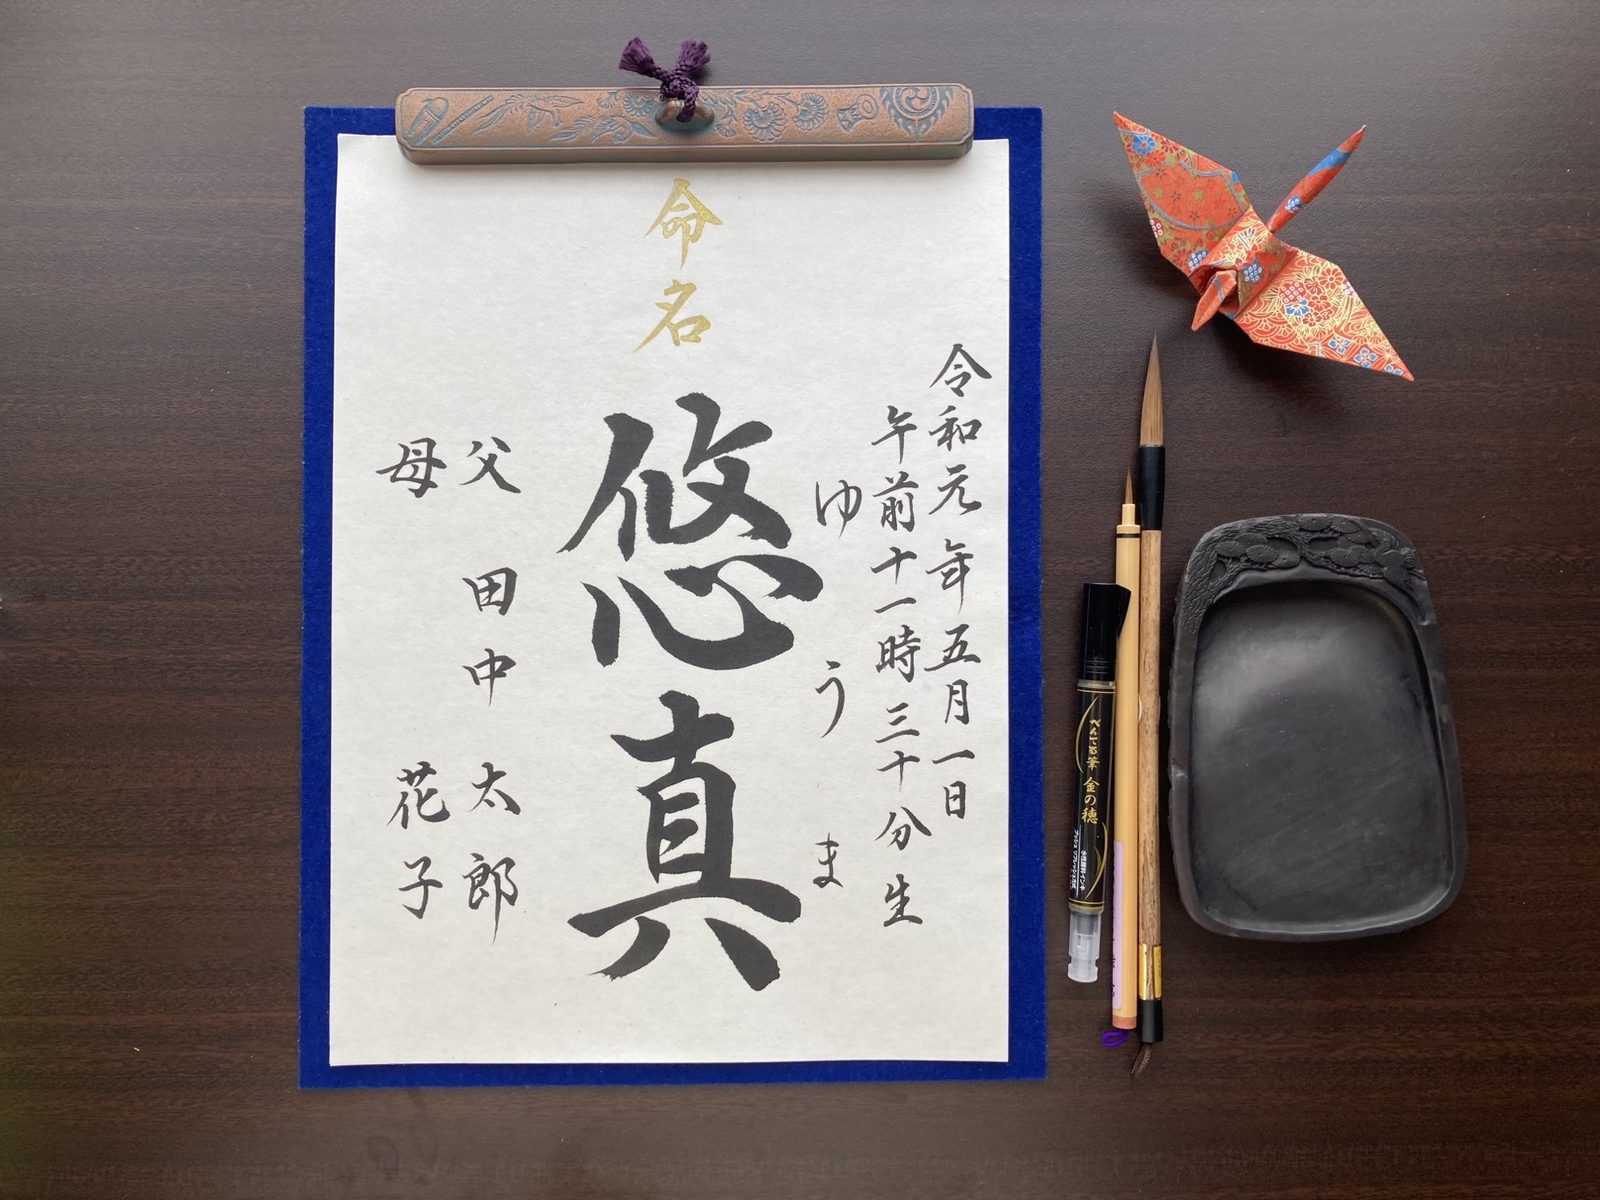 命名
令和元年五月一日
午前十一時三十分生
ゆうま
悠真
父 田中 太郎
母 花子
ぺんてる筆 金の穂